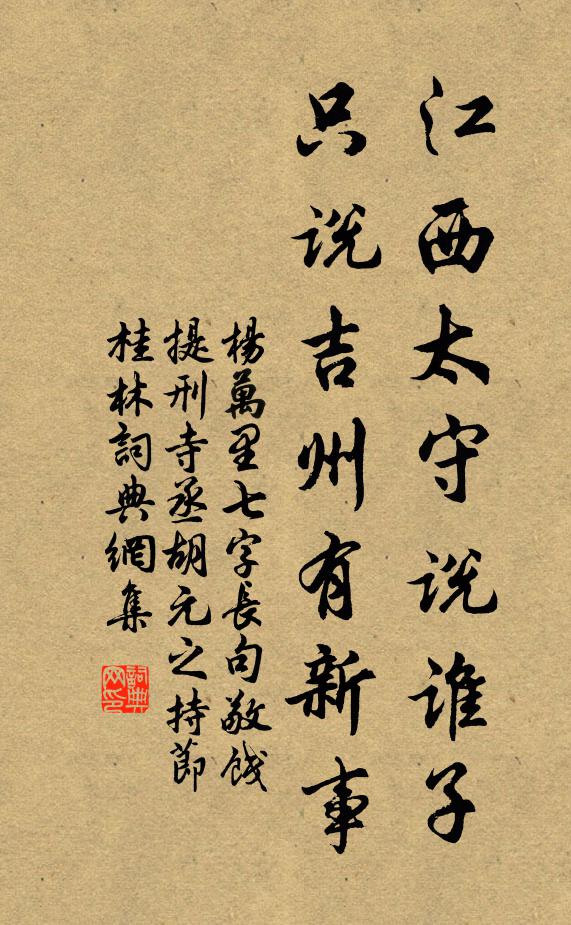 江西太守说谁子
只说吉州有新事
楊萬里七字長句敬餞
提刑寺丞胡元之持節
桂林詞典網集
詞典网印